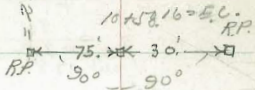 10+58.16=E.C.
R.P.
75' 30'
R.P. 90° 90°